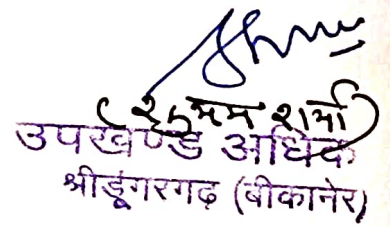 (शुभम शर्मा)
उपखण्ड अधिक
श्रीडूंगरगढ़ (बीकानेर)